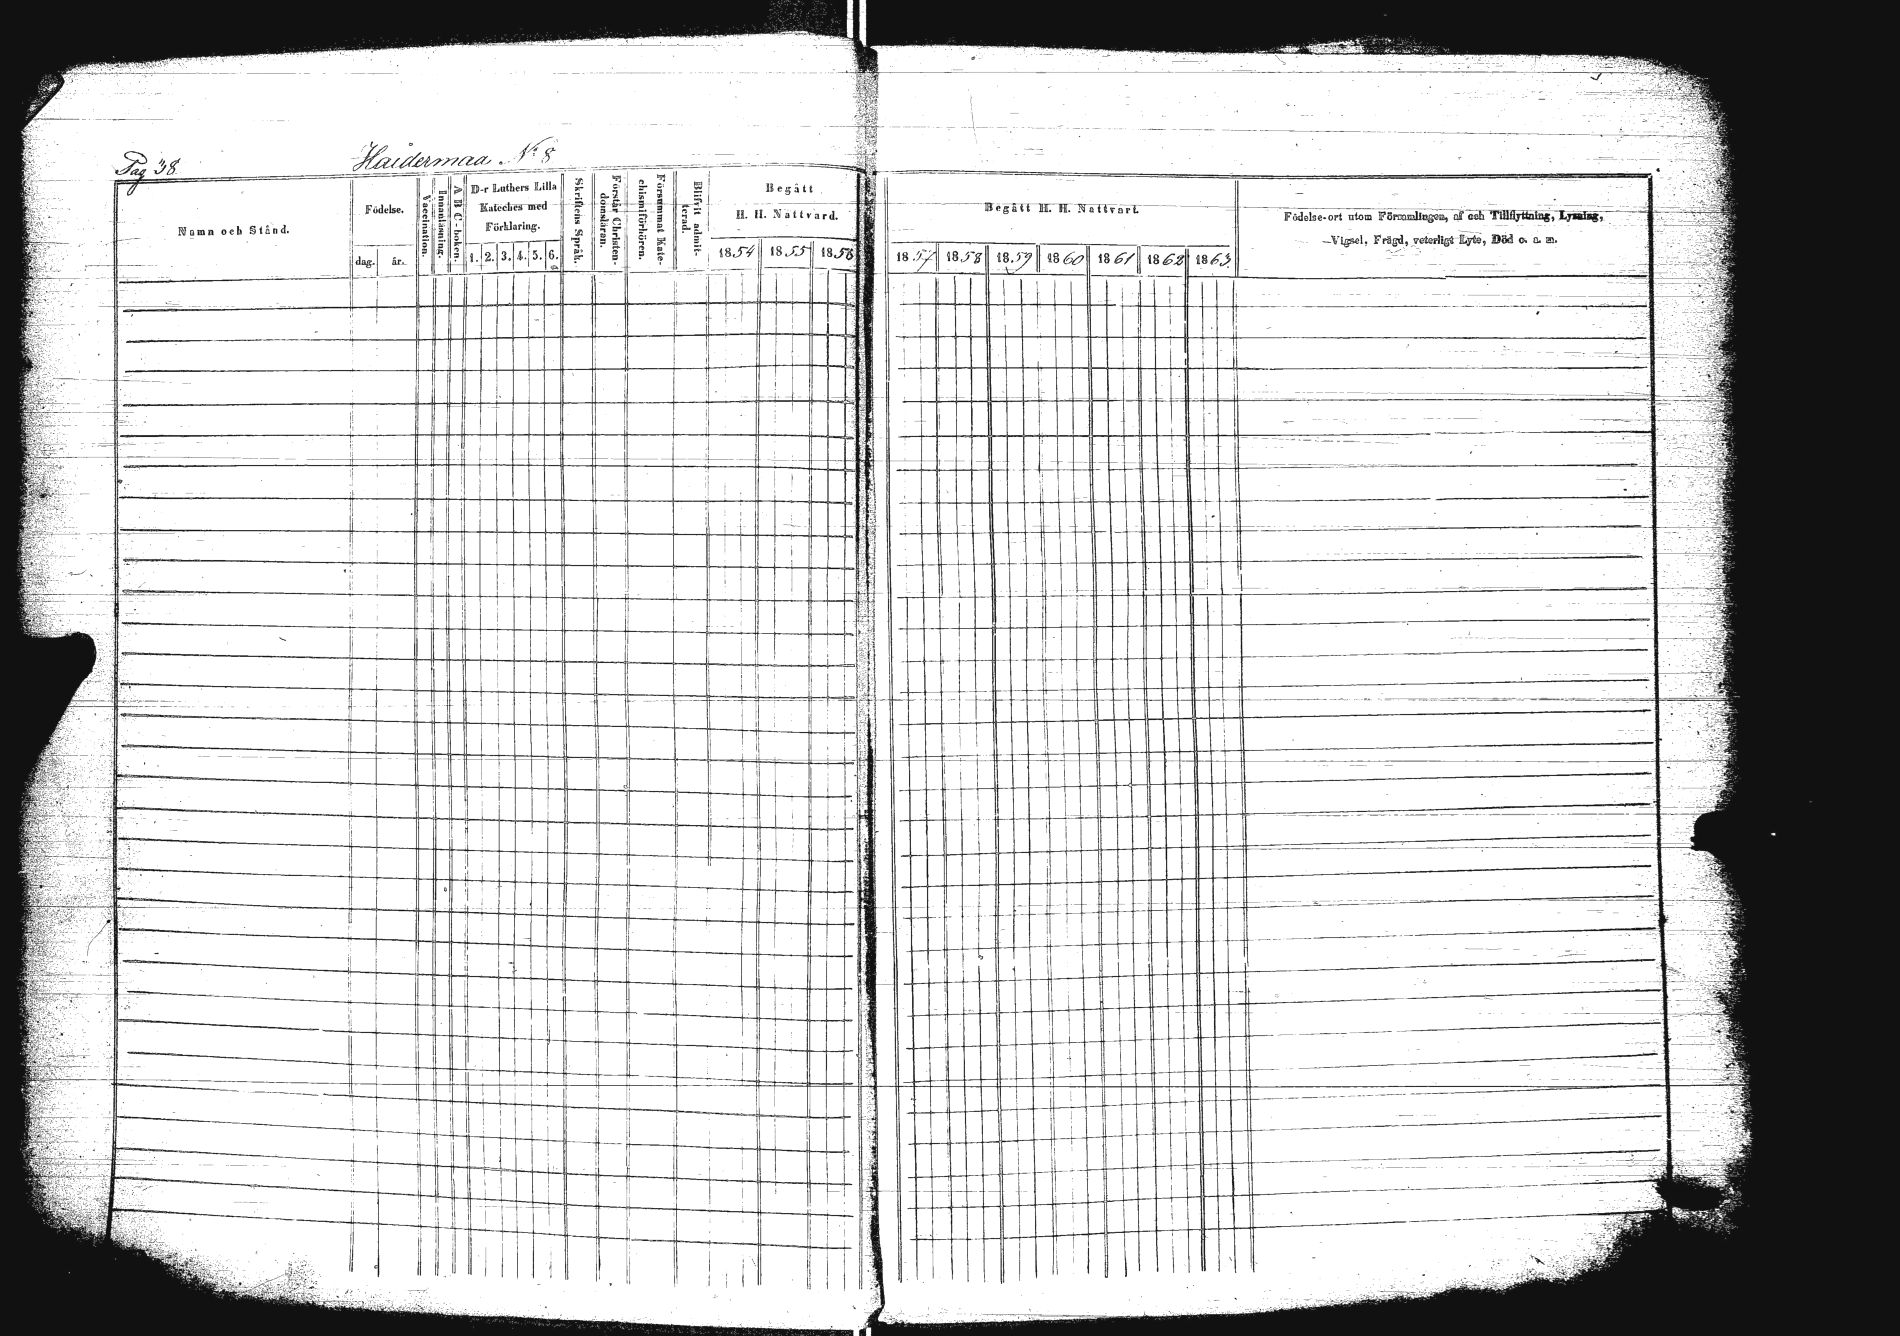 Pag 38
Haidermaa No 8
Namn och Stånd.
Födelse.
dag. år.
Vaccination.
Innanläsning.
A B C-boken.
D-r Luthers Lilla
Kateches med
Förklaring.
1. 2. 3. 4. 5. 6.
Skriftens Språk.
Förstår Christen-
domsläran.
Försummat Kate-
chismiförhören.
Blifvit admit-
terad.
Begått
H. H. Nattvard.
1854 1855 1856
Begått H. H. Nattvart.
1857 1858 1859 1860 1861 1862 1863.
Födelse-ort utom Församlingen, af och Tillflyttning, Lysning,
Vigsel, Frägd, veterligt Lyte, Död o. a. m.